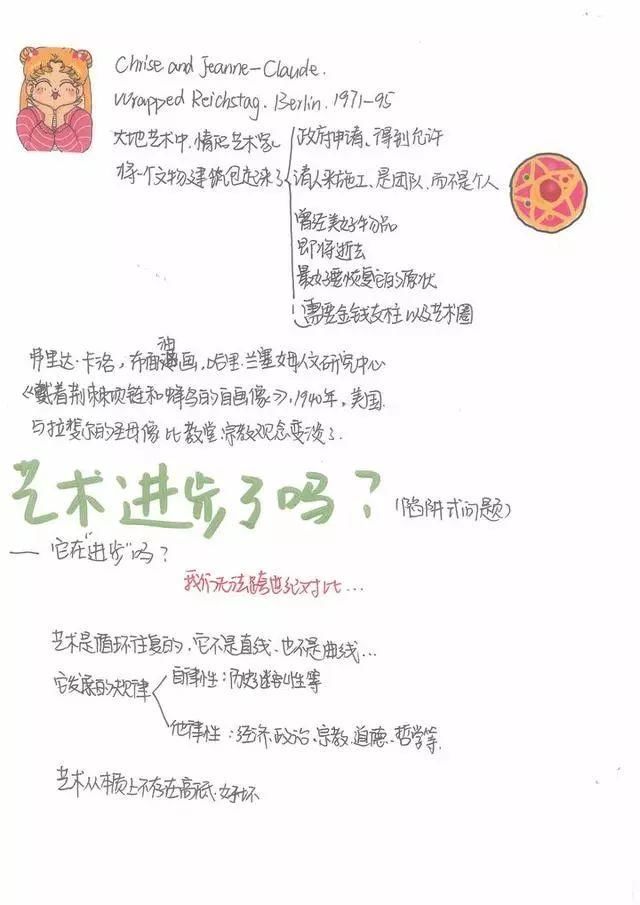 Chrise and Jeanne-Claude.
Wrapped Reichstag. Berlin. 1971-95
大地艺术中,情侣艺术家
将一个文物建筑包起来了
政府申请、得到允许
请人来施工、是团队、而不是个人
曾经美好物品
即将逝去
最好要恢复它的原状
需要金钱支柱以及艺术圈
弗里达·卡洛,布面油画,哈里·兰塞姆人文研究中心
《戴着荆棘项链和蜂鸟的自画像》,1940年,美国.
与拉斐尔的圣母像比教堂.宗教观念变淡了.
艺术进步了吗?(陷阱式问题)
—— 它在"进步"吗?
我们无法跨世纪对比...
艺术是循环往复的,它不是直线、也不是曲线...
它发展的规律
自律性:历史性等
他律性:经济.政治、宗教、道德、哲学等.
艺术从本质上不存在高低.好坏